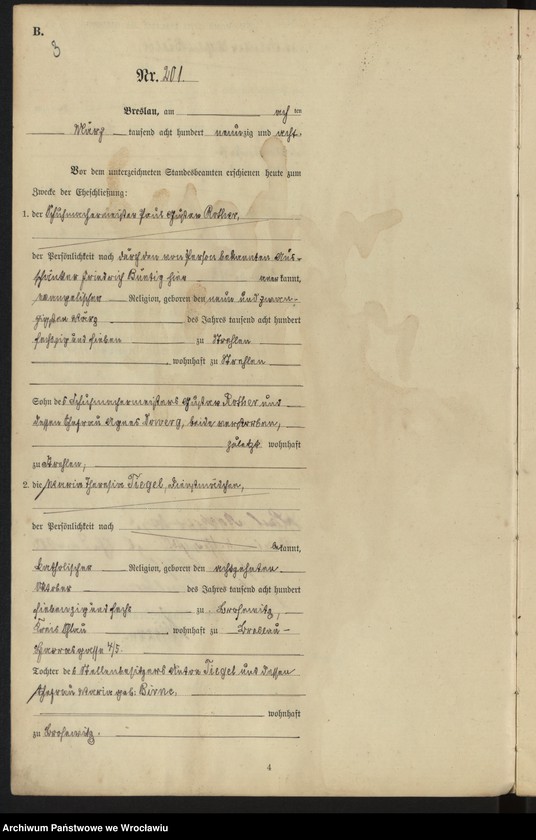 B.
3
Nr. 201.
Breslau, am acht ten
März tausend acht hundert neunzig und acht.
Vor dem unterzeichneten Standesbeamten erschienen heute zum
Zwecke der Eheschließung:
1. der Schuhmachermeister Paul Gustav Rother,
der Persönlichkeit nach durch den von Person bekannten Aus-
Friedrich Buntig hier kannt,
evangelischer Religion, geboren den neun und zwan-
zigsten März des Jahres tausend acht hundert
sechszig und sieben zu Strehlen
, wohnhaft zu Strehlen
Sohn des Schuhmachermeisters Gustav Rother und
dessen Ehefrau Agnes, beide verstorben,
zuletzt wohnhaft
zu Strehlen,
2. die Maria Theresia Tiegel, Dienstmädchen,
der Persönlichkeit nach
bekannt,
katholischer Religion, geboren den achtzehnten
Oktober des Jahres tausend acht hundert
siebenzig und sechs zu
Kreis Ohlau, wohnhaft zu Breslau –
4/5.
Tochter des Stellenbesitzers Tiegel und dessen
Ehefrau Maria geb. Birne,
wohnhaft
zu
4
Archiwum Państwowe we Wrocławiu